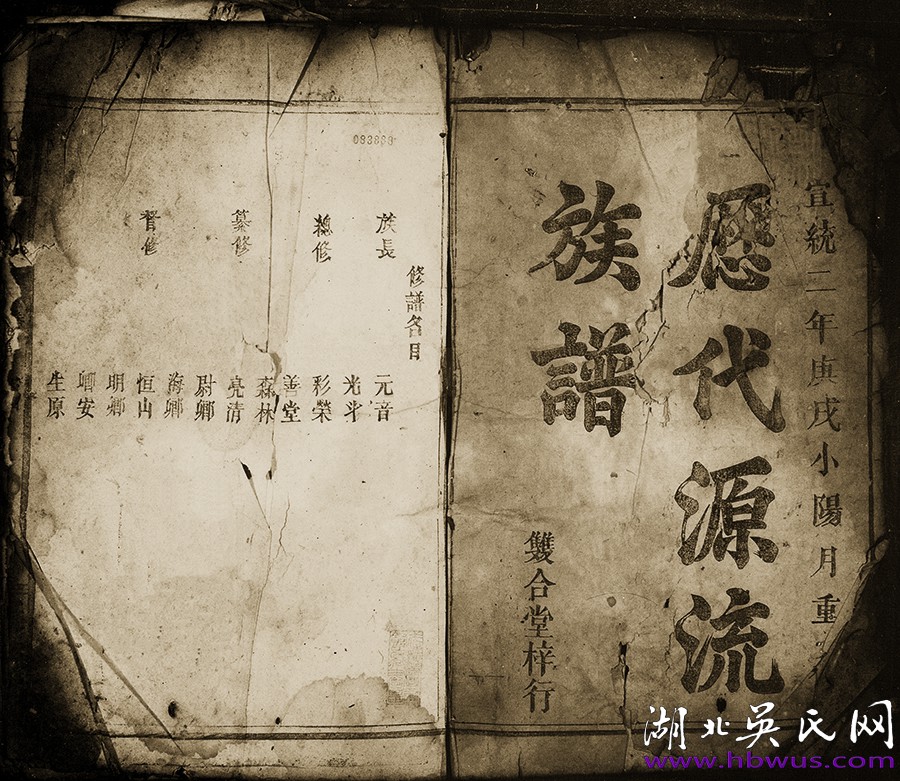 宣統二年庚戌小陽月重
歷代源流
族譜
雙合堂梓行
083898
修譜名目
族長
元音
光斗
總修
彩榮
善堂
森林
纂修
亮清
尉卿
海卿
督修
恒山
明卿
卿安
生原
湖北吳氏网
www.hbwus.com